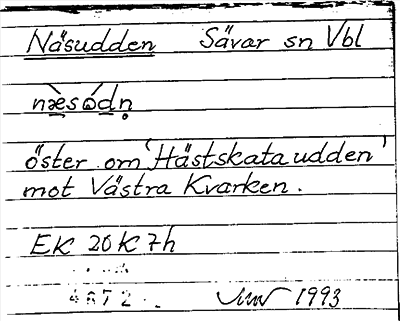 Näsudden Sävar sn Vbl
næ̀sǿdn̥
öster om 'Hästskataudden'
mot Västra Kvarken.
EK 20K7h
4872 1993